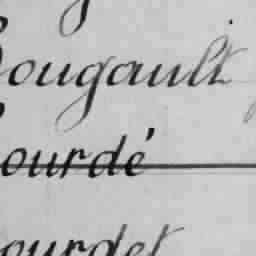 ougault
ourdé
ourdet